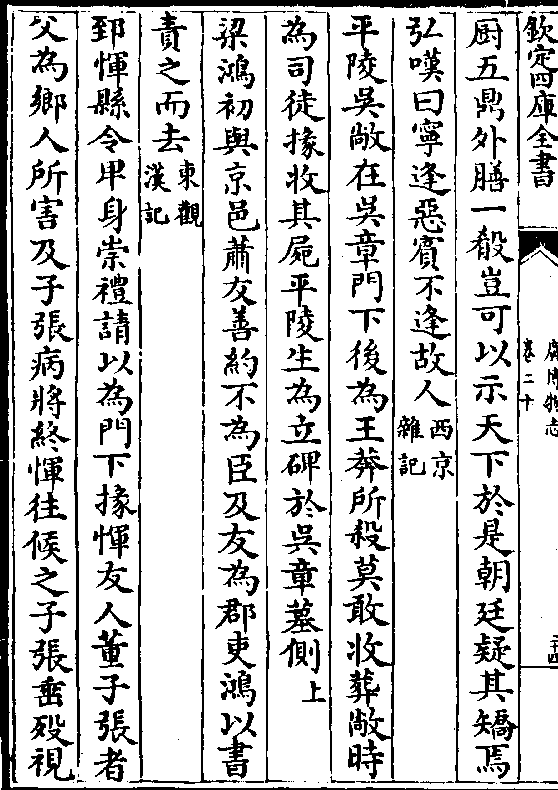 欽定四庫全書
廣博物志
卷二十
二十四
厨五鼎外膳一殽豈可以示天下於是朝廷疑其矯焉
弘嘆曰寧逢惡賓不逢故人西京雜記
平陵吳敞在吳章門下後為王莽所殺莫敢收葬敞時
為司徒掾收其屍平陵生為立碑於吳章墓側上
梁鴻初與京邑蕭友善約不為臣及友為郡吏鴻以書
責之而去東觀漢記
郅惲縣令卑身崇禮請以為門下掾惲友人董子張者
父為鄉人所害及子張病將終惲往候之子張垂殁視